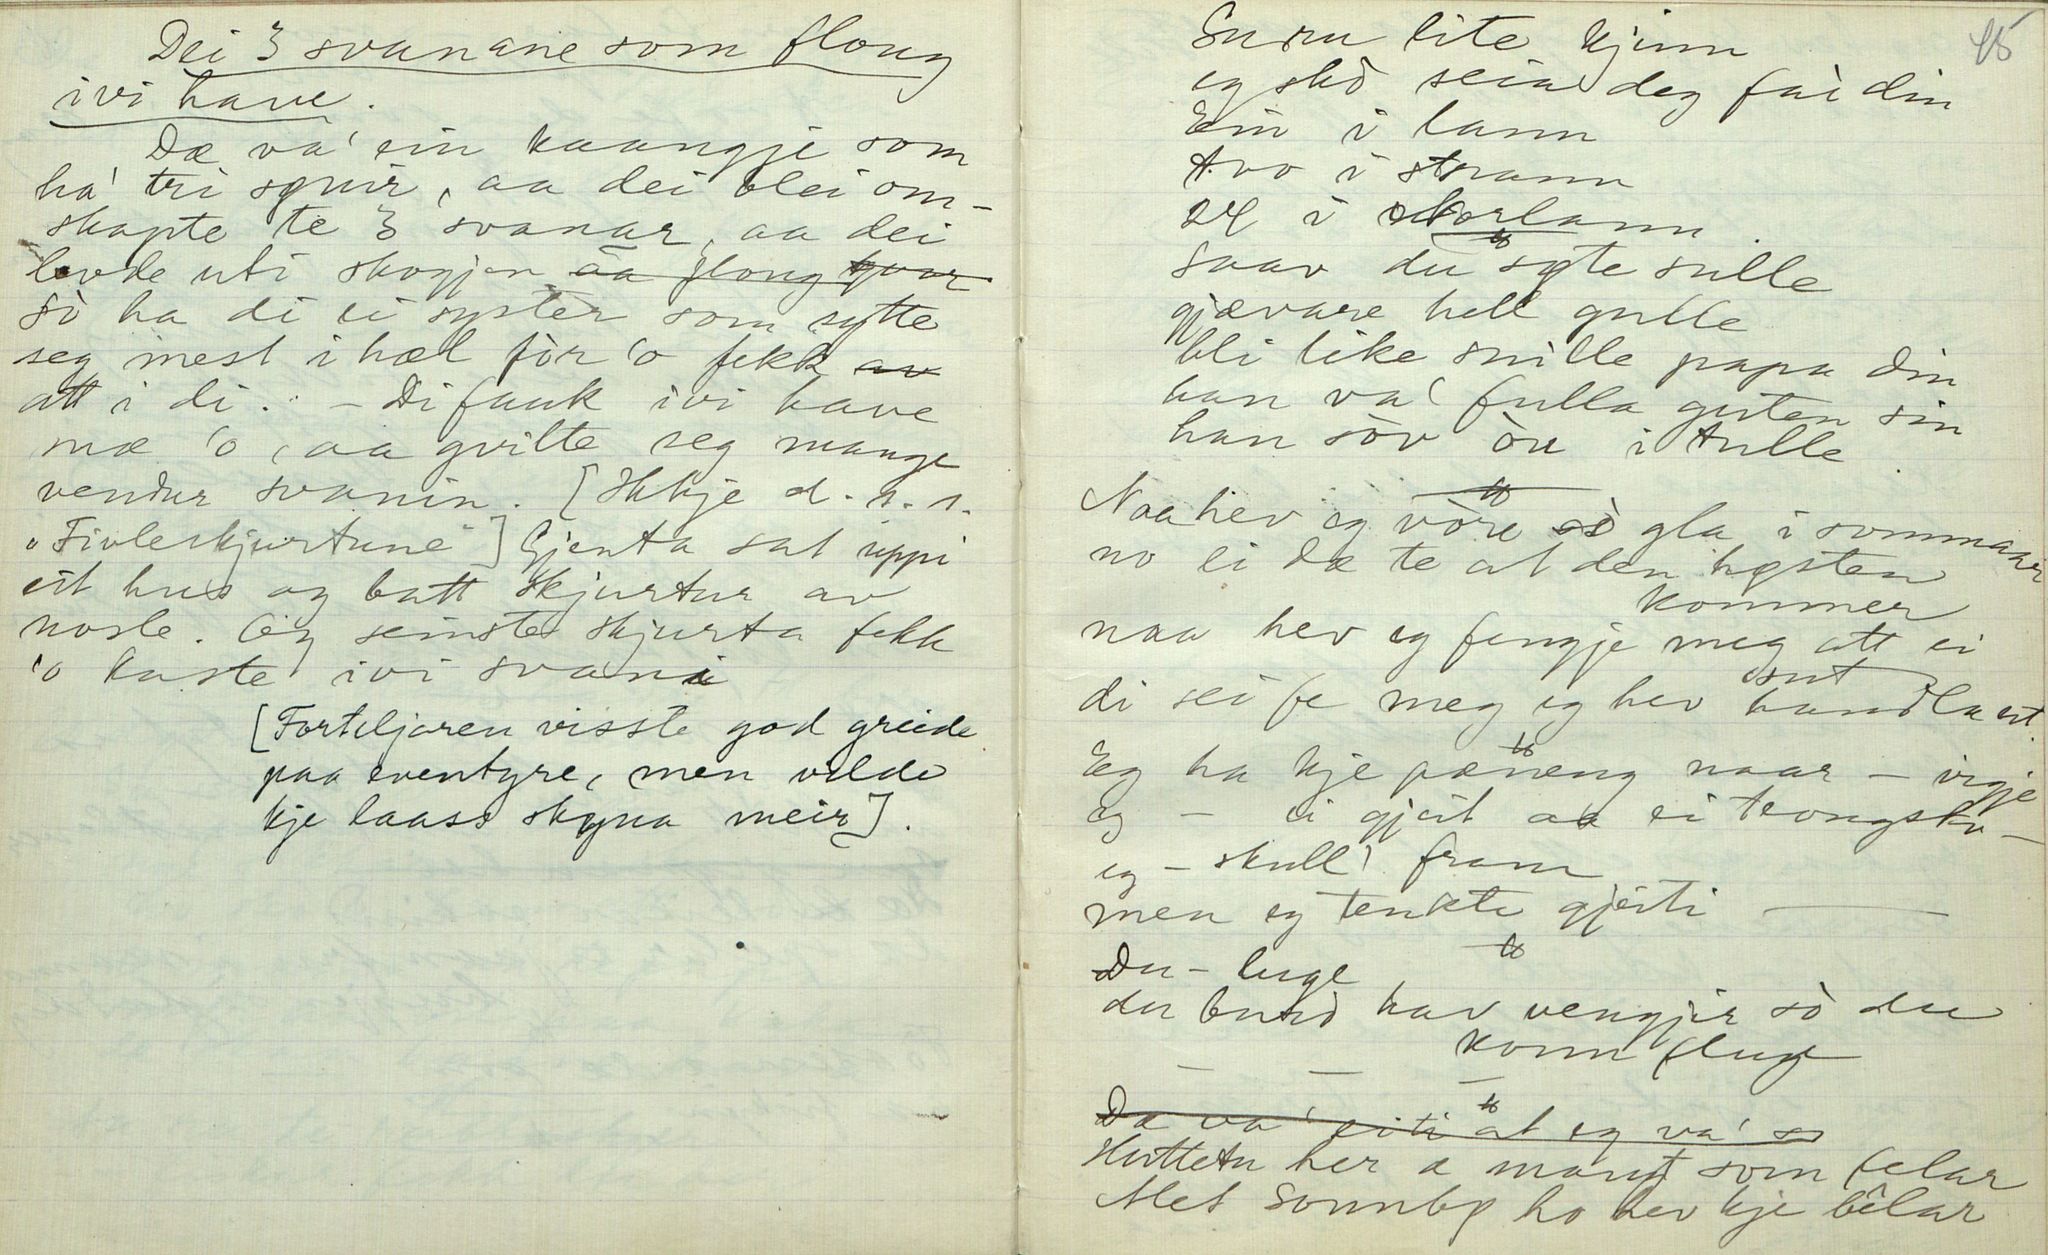 Dei 3 svanane som floug
ivi have.
Dæ va' ein kaangje som
ha' tri synir, aa dei blei om-
skapte te 3 svanar, aa dei
levde uti skogjen aa floug
Sò ha di ei syster som sytte
seg mest i hæl fòr 'o fekk av
att i di. - Di fauk ivi have
mæ 'o, aa qvilte seg mange
vendur svanin. [Ikkje d. s. s.
"Fivleskjurtune"] Gjenta sat uppi
eit hus og batt skjurtur av
nosle. Og seinste skjurta fekk
'o kaste ivi svani
[Forteljaren visste god greide
paa eventyre, men vilde
kje laass skyna meir].
45
Suru lite kjinn
eg skò seia deg fài din
Ein i lann
tvo i strann
24 i skorlann
Saav du syte sulle
gjævare hell gulle
bli like snille papa din
han va' fulla guten sin
han sòv òu i tulle
Naa hev eg vòre sò gla i sommaar
no li dæ te at den hysten
kommer
naa hev eg fengje meg att ei
snt
di sei fe meg eg hev handla it.
Eg ha kje pæneng naar - vigje
eg - ei gjeit aa ei trongsku -
eg - skull' fram
men eg tenkte gjeiti
Du - luge
du burd hav vengjir sò du
konn fluge
Dæ va' eiti at eg va' so
Huttetu her æ mangt som felar
Alet Sonnby ho hev kje bêlar